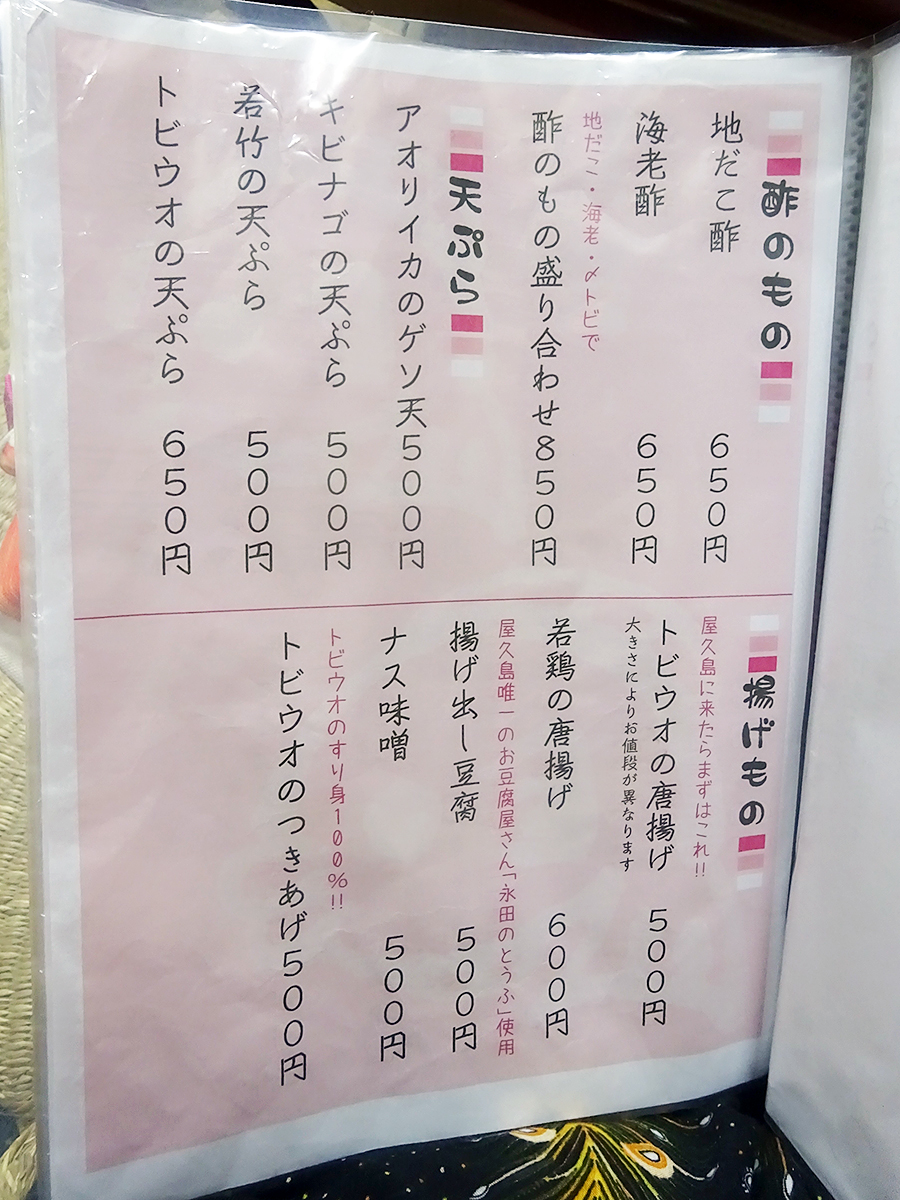 酢のもの
地だこ酢 650円
海老酢 650円
地だこ・海老・〆トビで
酢のもの盛り合わせ 850円
天ぷら
アオリイカのゲソ天 500円
キビナゴの天ぷら 500円
若竹の天ぷら 500円
トビウオの天ぷら 650円
揚げもの
屋久島に来たらまずはこれ!!
トビウオの唐揚げ 500円
大きさによりお値段が異なります
若鶏の唐揚げ 600円
屋久島唯一のお豆腐屋さん「永田のとうふ」使用
揚げ出し豆腐 500円
ナス味噌 500円
トビウオのすり身100%!!
トビウオのつきあげ 500円